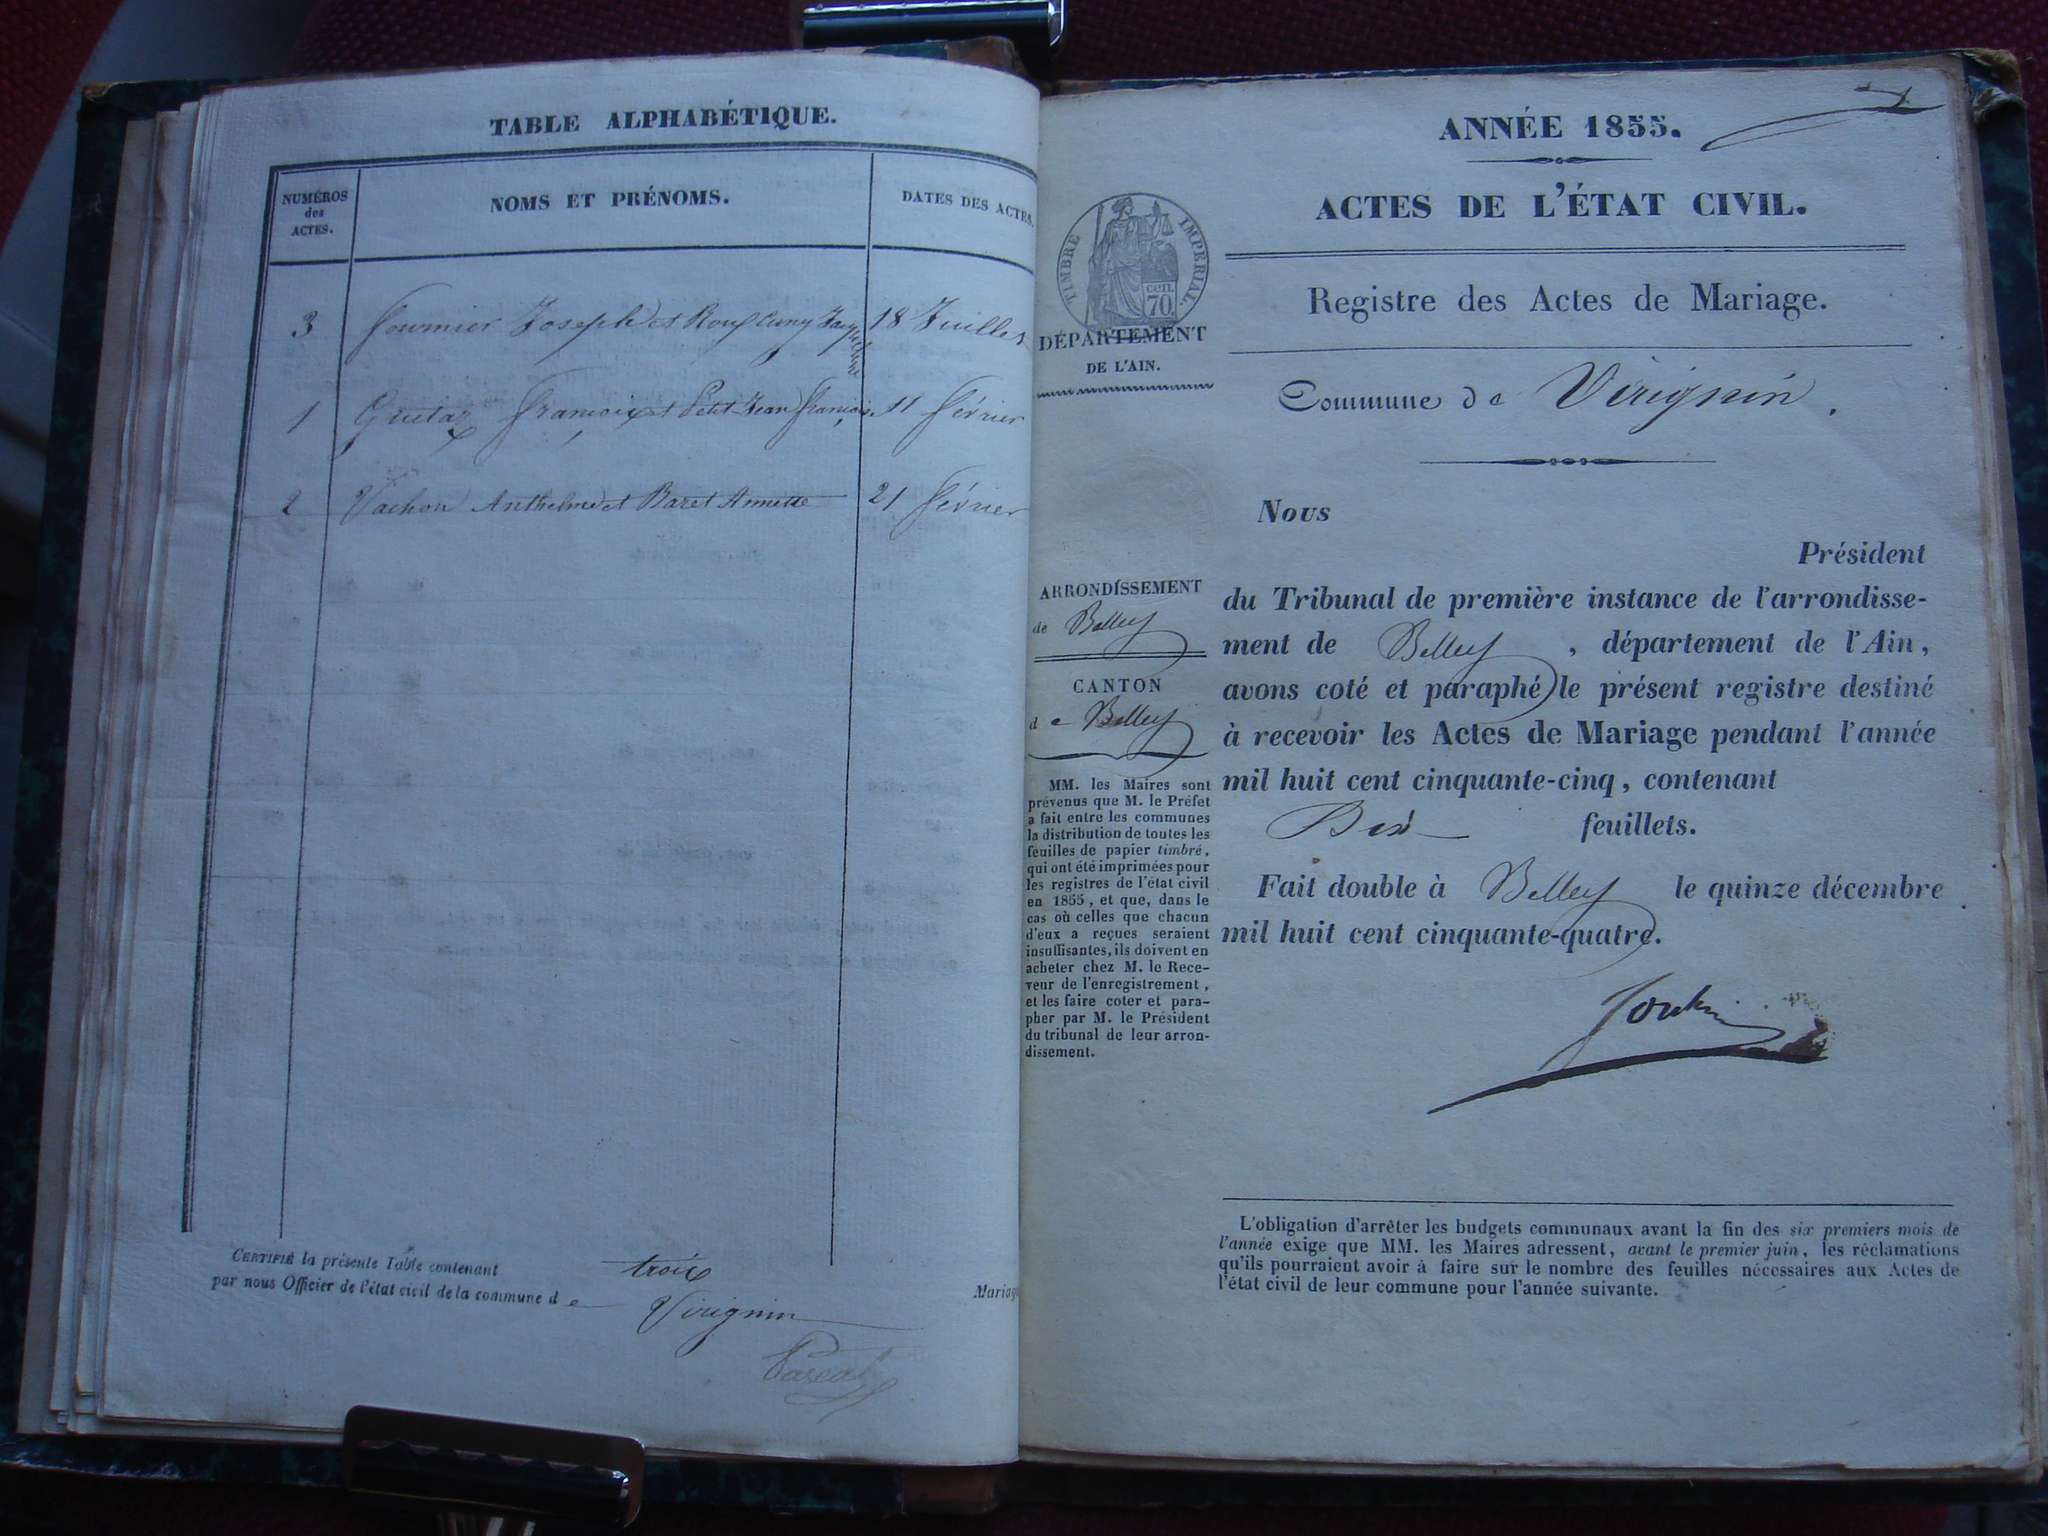 TABLE ALPHABÉTIQUE.
NUMÉROS
des
ACTES.
NOMS ET PRÉNOMS.
DATES DES ACTES.
3 Fournier Joseph et 18 Juillet
1 Guetaz François et Petit-Jean Françoise 11 février
2 Vachon Anthelme et Baret Annette 21 février
CERTIFIÉ la présente Table contenant trois Mariag
par nous Officier de l'état civil de la commune de Virignin
Pascal
ANNÉE 1855.
ACTES DE L'ÉTAT CIVIL.
Registre des Actes de Mariage.
Commune de Virignin.
TIMBRE IMPERIAL.
cen.
70.
DÉPARTEMENT
DE L'AIN.
ARRONDISSEMENT
de Belley
CANTON
de Belley
MM. les Maires sont
prévenus que M. le Préfet
a fait entre les communes
la distribution de toutes les
feuilles de papier timbré,
qui ont été imprimées pour
les registres de l'état civil
en 1855, et que, dans le
cas où celles que chacun
d'eux a reçues seraient
insuffisantes, ils doivent en
acheter chez M. le Rece-
veur de l'enregistrement,
et les faire coter et para-
pher par M. le Président
du tribunal de leur arron-
dissement.
Nous
Président
du Tribunal de première instance de l'arrondisse-
ment de Belley, département de l'Ain,
avons coté et paraphé le présent registre destiné
à recevoir les Actes de Mariage pendant l'année
mil huit cent cinquante-cinq, contenant
feuillets.
Fait double à Belley le quinze décembre
mil huit cent cinquante-quatre.
L'obligation d'arrêter les budgets communaux avant la fin des six premiers mois de
l'année exige que MM. les Maires adressent, avant le premier juin, les réclamations
qu'ils pourraient avoir à faire sur le nombre des feuilles nécessaires aux Actes de
l'état civil de leur commune pour l'année suivante.